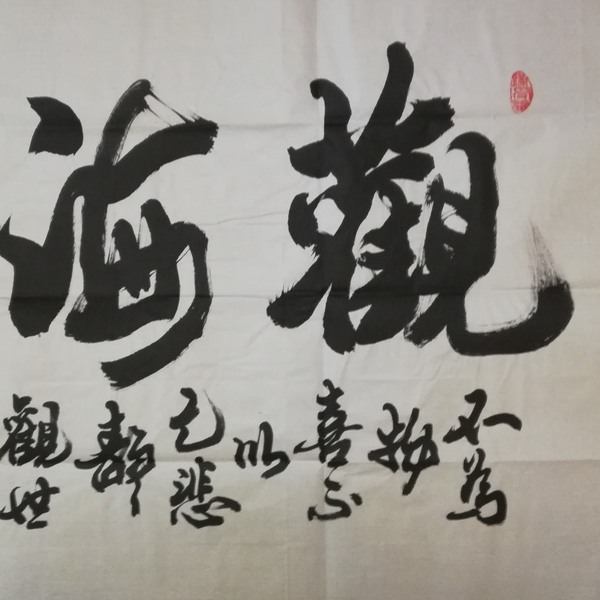 觀海
不為
物
喜不
以
己悲
靜
觀世